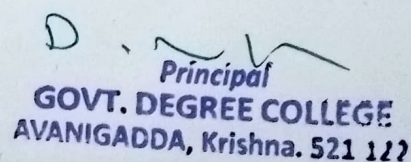 Principal
GOVT. DEGREE COLLEGE
AVANIGADDA, Krishna. 521 122